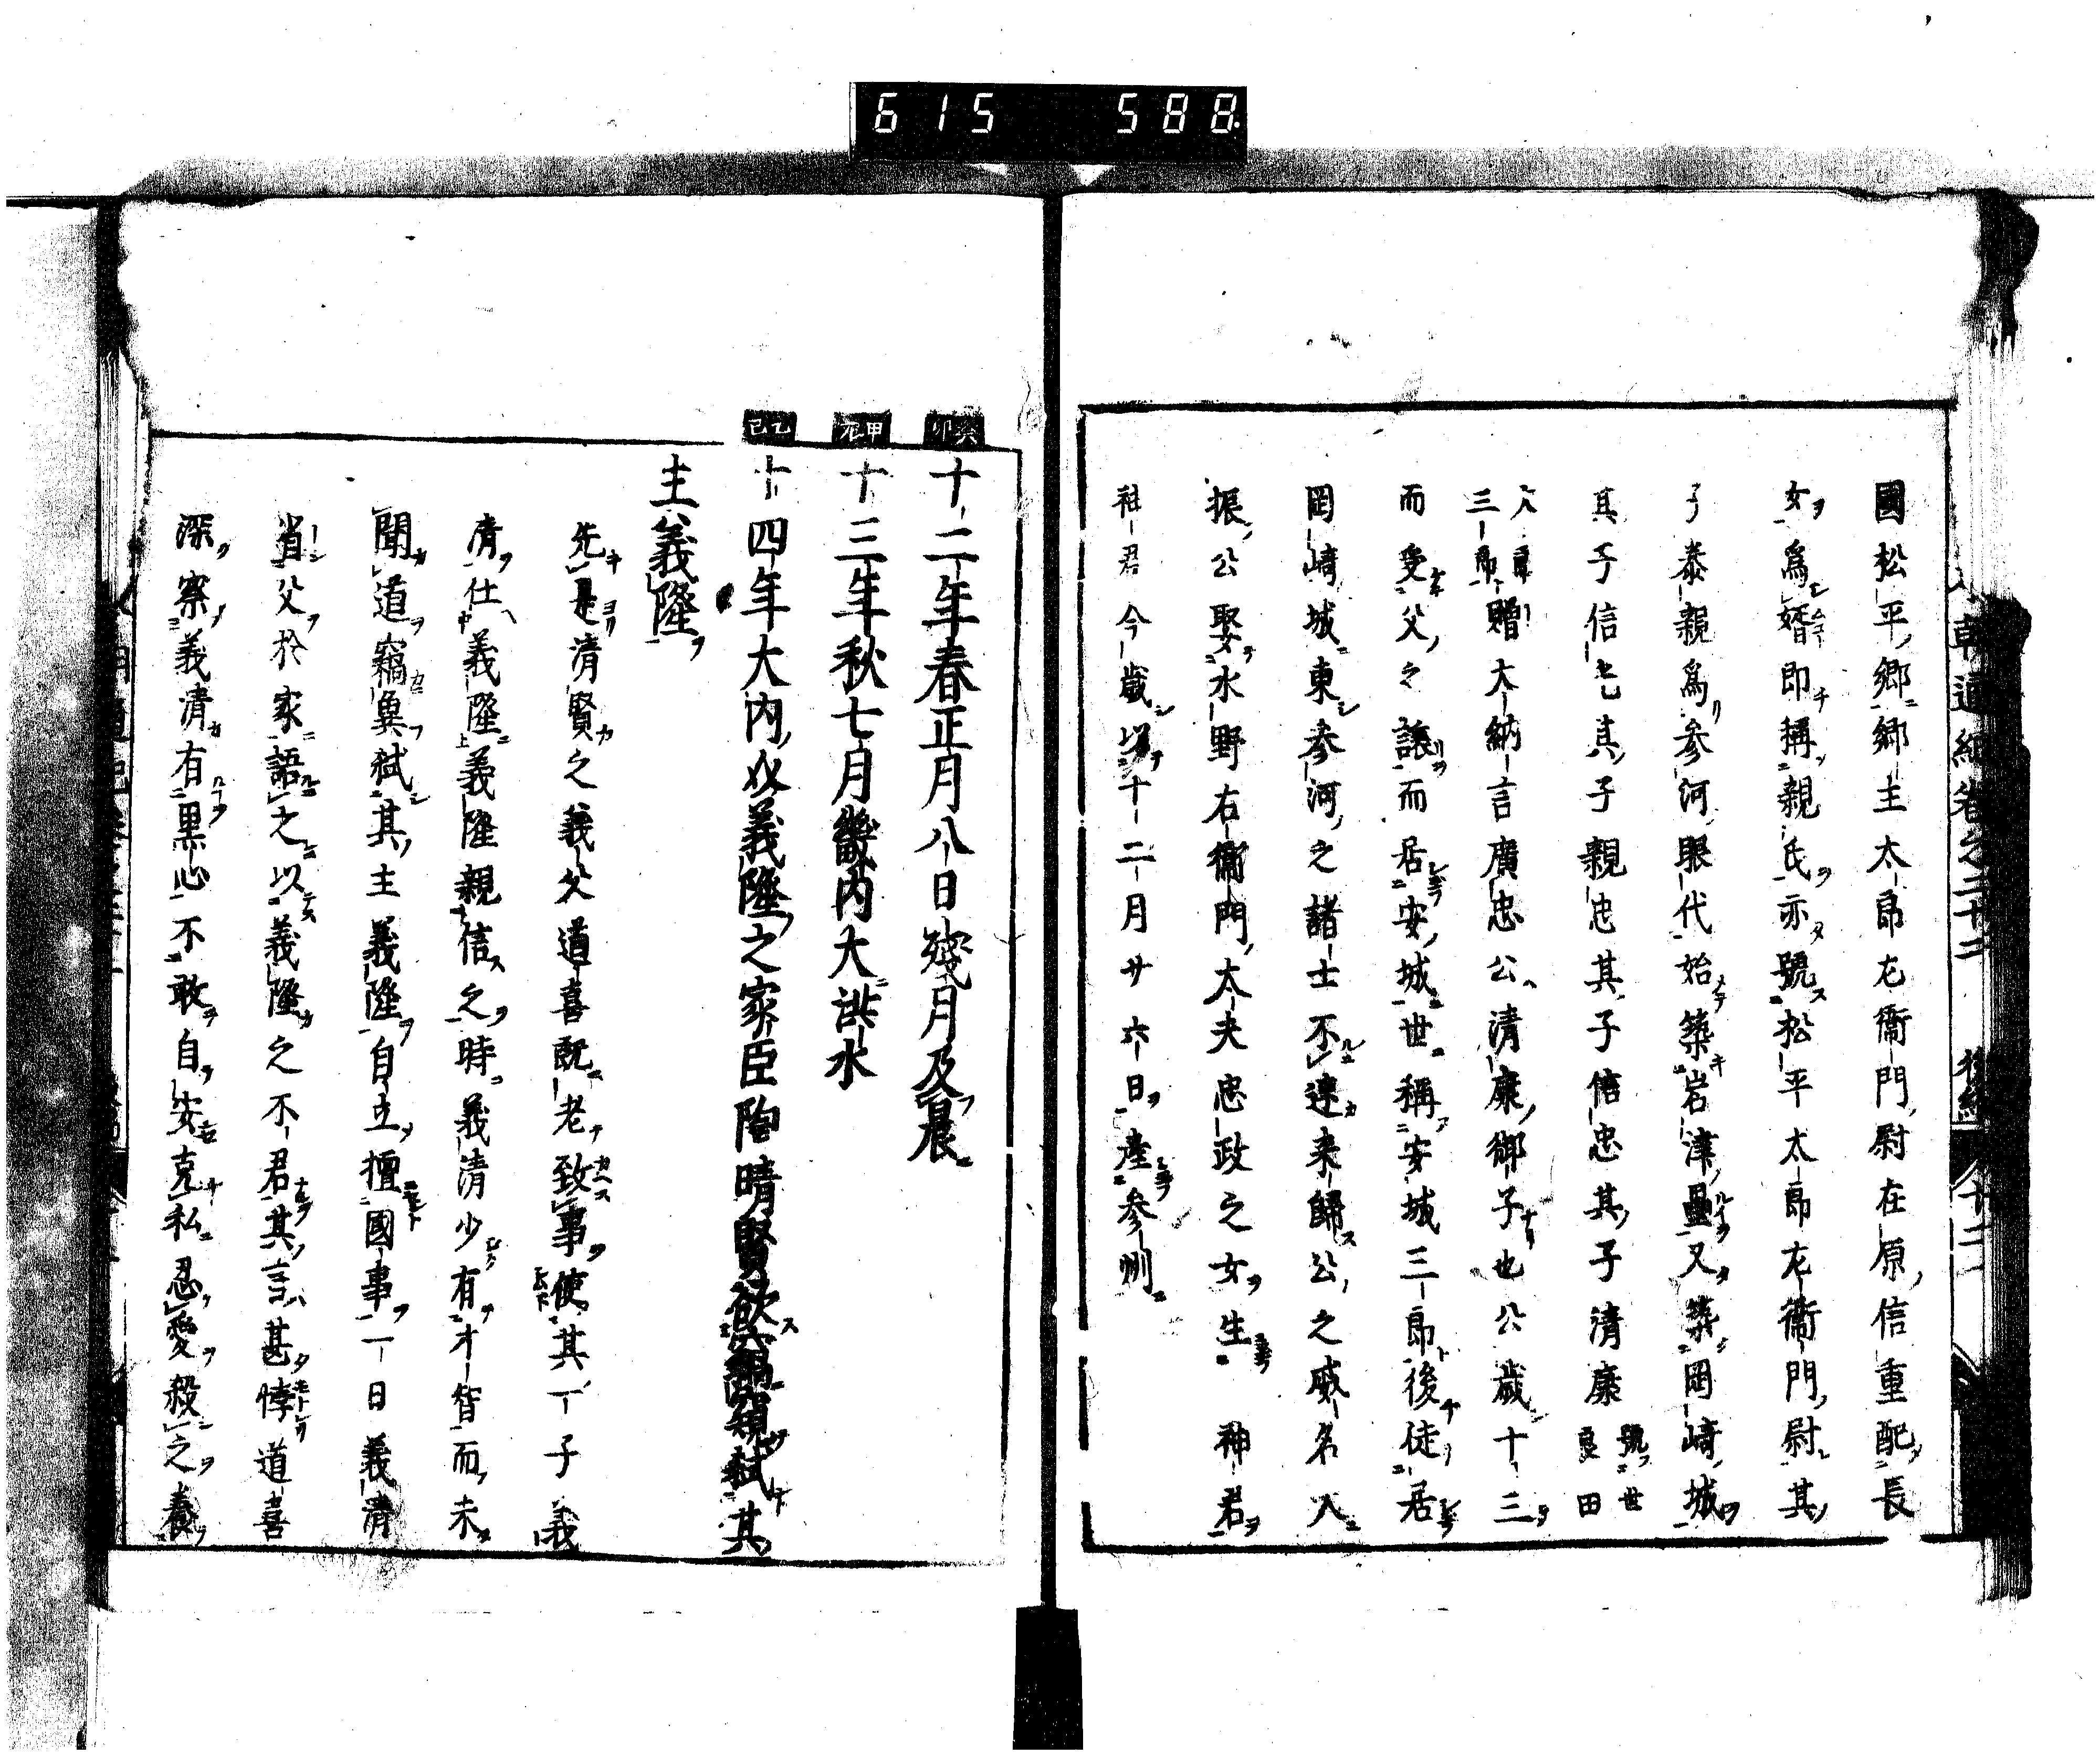 615 588
國松平郷郷主太郎左衞門尉在原信重配長
女爲婿即稱親氏亦號松平太郎左衞門尉其
子泰親爲參河眼代始築岩津壘又築岡崎城
其子信光其子親忠其子信忠其子清康號世良田
次郎三郎贈大納言廣忠公清康御子也公歳十三
而受父之讓而居安城世稱安城三郎後徒居
岡崎城東參河之諸士不速來歸公之威名入
振公娶水野右衞門太夫忠政之女生 神君
神君今歳十二月廿六日產參州
癸卯 十二年春正月八日殘月及晨
甲辰 十三年秋七月畿内大洪水
乙巳 十四年大内義隆之家臣陶晴賢欲竊窺弑其
主義隆
先是清賢之義父道喜既老致事使其一子義
清仕義隆義隆親信之時義清少有才智而未
聞道竊冀弑其主義隆自立擅國事一日義清
省父於家語之以義隆之不君其言甚悖道喜
深察義清有黒心不敢自安克私忍愛殺之養